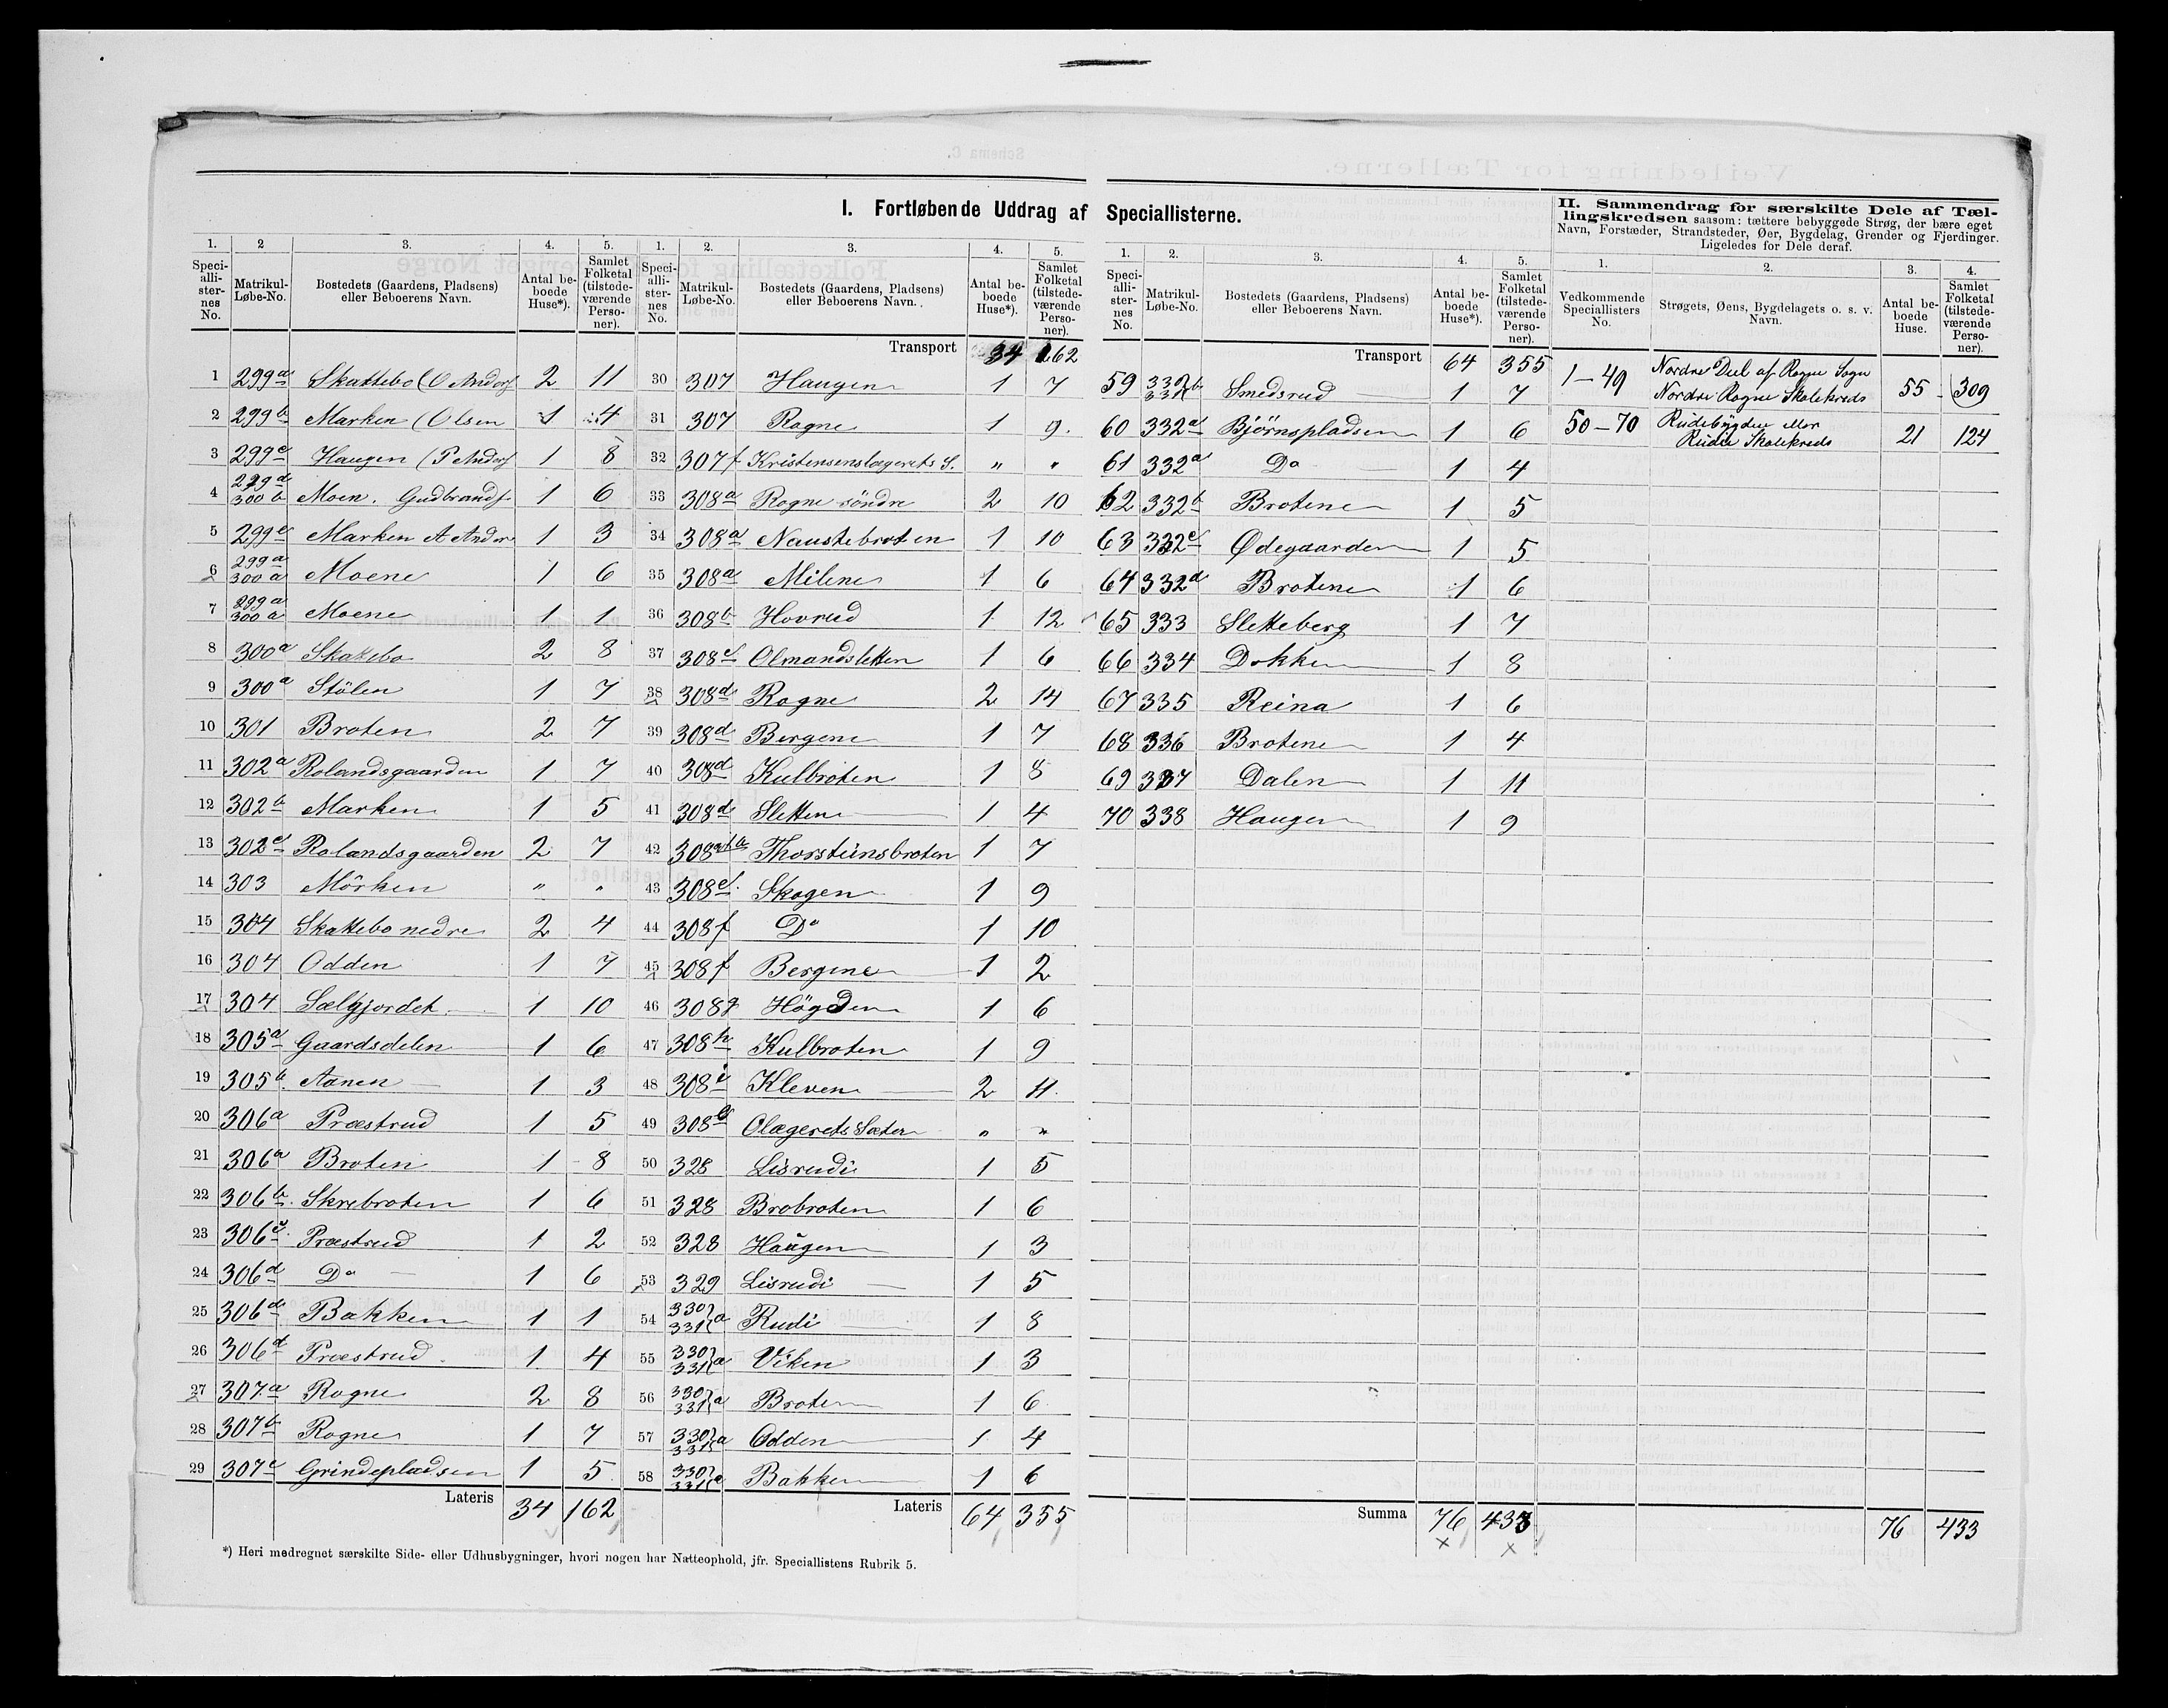 I. Fortløbende Uddrag af Speciallisterne.
1. 2 3. 4. 5.
Speciallisternes No. Matrikul-Løbe-No. Bostedets (Gaardens, Pladsens) eller Beboerens Navn. Antal beboede Huse*). Samlet Folketal (tilstedeværende Personer).
1 299a Skattebo (O Anders 2 11
2 299b Marken (Olsen 1 4
3 299c Haugen (P Anders 1 8
4 299d 300b Moen. Gudbrands 1 6
5 299e Marken A Anders 1 3
6 299a 300a Moene 1 6
7 299a 300a Moene 1 1
8 300a Skattebo 2 8
9 300a Stölen 1 7
10 301 Broten 2 7
11 302a Rolandsgaarden 1 7
12 302b Marken 1 5
13 302c Rolandsgaarden 2 7
14 303 Mörken " "
15 304 Skattebo nedre 2 4
16 304 Odden 1 7
17 304 Sælgjordet 1 10
18 305a Gaardsdelen 1 6
19 305b Aanen 1 3
20 306a Præstrud 1 5
21 306a Broten 1 8
22 306b Skrebroten 1 6
23 306c Præstrud 1 2
24 306d Do 1 6
25 306d Bakken 1 1
26 306d Præstrud 1 4
27 307a Rogne 2 8
28 307b Rogne 1 7
29 307c Grindepladsen 1 5
Lateris 34 162
1. 2. 3. 4. 5.
Speciallisternes No. Matrikul-Løbe-No. Bostedets (Gaardens, Pladsens) eller Beboerens Navn. Antal beboede Huse*). Samlet Folketal (tilstedeværende Personer).
Transport 34 162
30 307 Haugen 1 7
31 307 Rogne 1 9.
32 307f Kristensenslægerets S. " "
33 308a Rogne söndre 2 10
34 308a Naustebroten 1 10
35 308a Milene 1 6
36 308b Hovrud 1 12
37 308c Olmandsletten 1 6
38 308d Rogne 2 14
39 308d Bergene 1 7
40 308d Kulbroten 1 8
41 308d Sletten 1 4
42 308 Thorsteinsbroten 1 7
43 308e Skogen 1 9
44 308f Do 1 10
45 308f Bergene 1 2
46 308g Högden 1 6
47 308h Kulbroten 1 9
48 308i Kleven 2 11
49 308 Olægerets Sæter " "
50 328 Lisrudi 1 5
51 328 Brobroten 1 6
52 328 Haugen 1 3
53 329 Lisrudi 1 5
54 330 331 a Rudi 1 8
55 330 331 a Viken 1 3
56 330 331 a Broten 1 6
57 330 331 a Odden 1 4
58 330 331 a Bakken 1 6
Lateris 64 355
1. 2. 3. 4. 5.
Speciallisternes No. Matrikul-Løbe-No. Bostedets (Gaardens, Pladsens) eller Beboerens Navn. Antal beboede Huse*). Samlet Folketal (tilstedeværende Personer).
Transport 64 355
59 330 331 b Smedsrud 1 7
60 332a Björnspladsen 1 6
61 332a Do 1 4
62 332b Brotene 1 5
63 332c Ødegaarden 1 5
64 332d Brotene 1 6
65 333 Sletteberg 1 7
66 334 Dokken 1 8
67 335 Reina 1 6
68 336 Brotene 1 4
69 337 Dalen 1 11
70 338 Haugen 1 9
Summa 76 433
II. Sammendrag for særskilte Dele af Tællingskredsen saasom: tættere bebyggede Strøg, der bære eget Navn, Forstæder, Strandsteder, Øer, Bygdelag, Grender og Fjerdinger. Ligeledes for Dele deraf.
1. 2. 3. 4.
Vedkommende Speciallisters No. Strøgets, Øens, Bygdelagets o. s. v. Navn. Antal beboede Huse. Samlet Folketal (tilstedeværende Personer).
1-49 Nordre Deel af Rogne Sogn
Nordre Rogne Skolekreds 55 309
50-70 Rudebygden
Rudi Skolekreds 21 124
76 433
*) Heri medregnet særskilte Side- eller Udhusbygninger, hvori nogen har Natteophold, jfr. Speciallistens Rubrik 5.